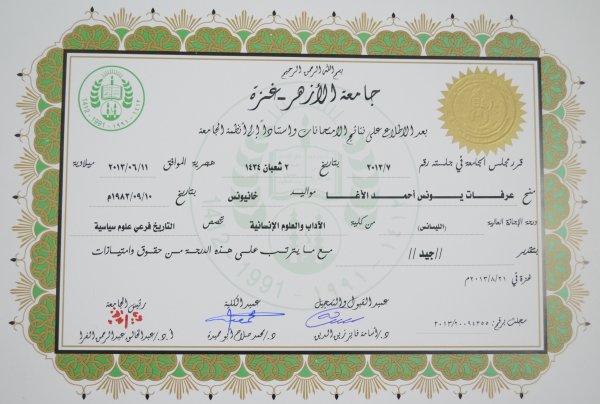 بسم الله الرحمن الرحيم
جامعة الأزهر-غزة
بعد الاطلاع على نتائج الامتحانات واستناداً إلى أنظمة الجامعة
قرر مجلس الجامعة في جلسته رقم ٢٠١٣/٧ بتاريخ ٢ شعبان ١٤٣٤ هجرية الموافق ٢٠١٣/٠٦/١١ ميلادية
منح عرفات يونس أحمد الأغا مواليد خانيونس بتاريخ ١٩٨٣/٠٩/١٠م
درجة الإجازة العالية (الليسانس) من كلية الآداب والعلوم الإنسانية تخصص التاريخ فرعي علوم سياسية
بتقدير //جيد// مع ما يترتب على هذه الدرجة من حقوق وامتيازات
غزة في ٢٠١٣/٨/٢١م
عميد القبول والتسجيل عميد الكلية رئيس الجامعة
د./أسامة فايز زين الدين د./محمد صلاح أبو حميدة أ.د./عبدالخالق عبدالرحمن الفرا
سجلت برقم: ٢٠١٣/٢٠٠٩٤٣٥٥
1991-١٩٩١